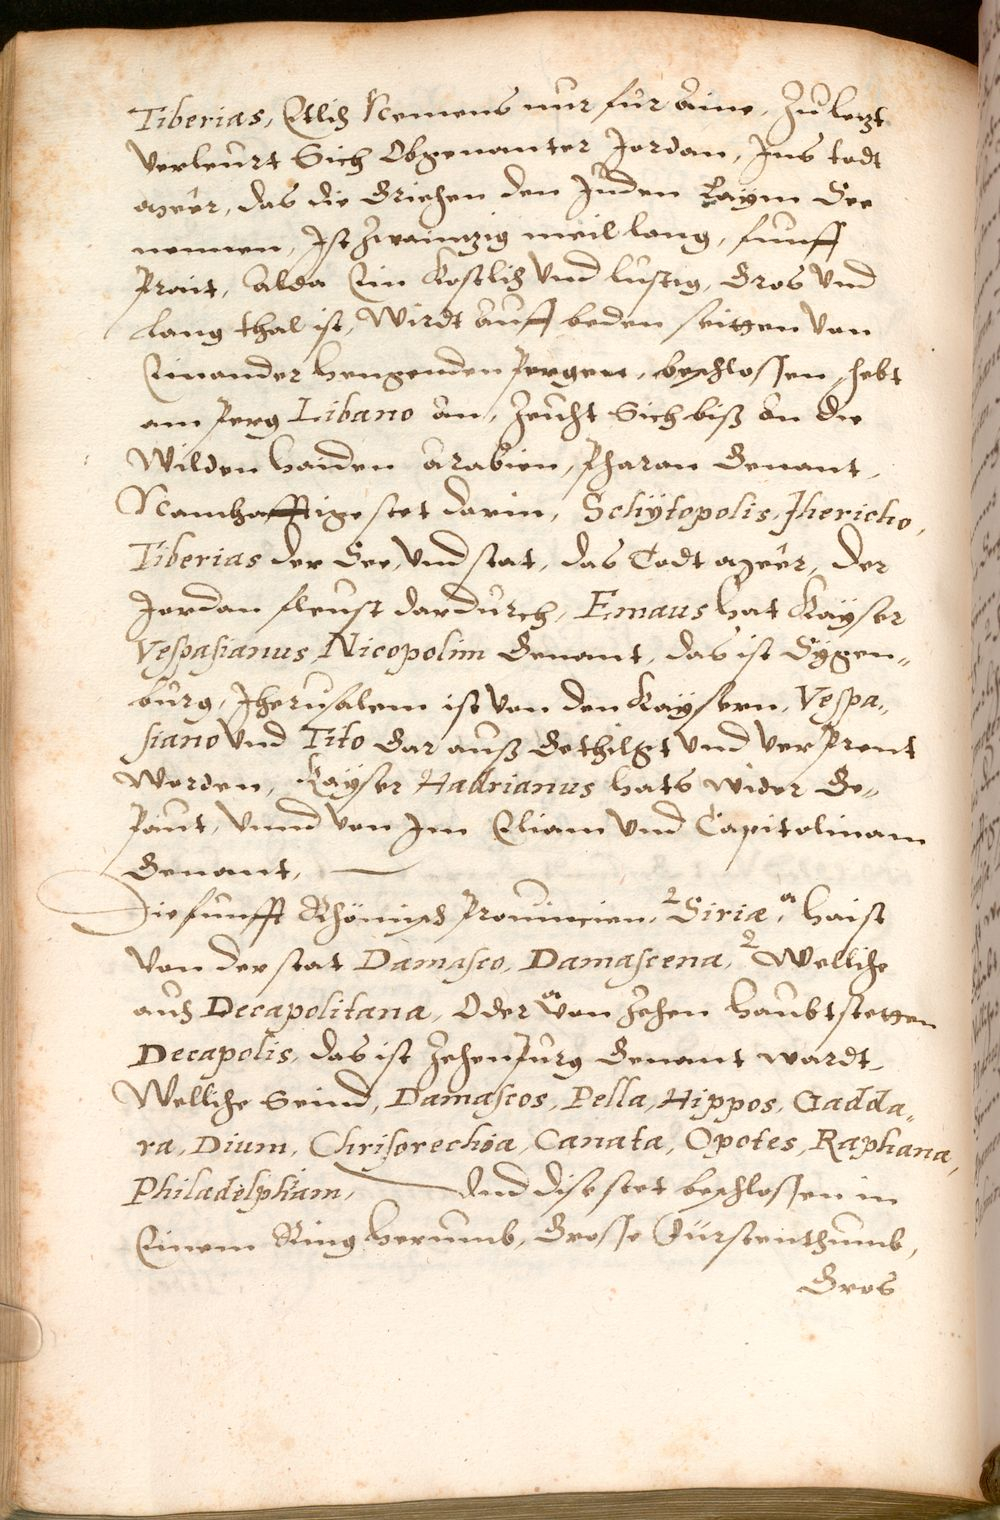 Tiberias, Etlich Nemens nur für aine, Zu letzt
verleurt Sich Obgenanter Jordan, Jns todt
Meer, das die Griechen den Juden Laym See
nennen, Jst Zwaintzig meil lang, funff
Prait, alda Ein Kostlich Vnd lustig, Gros Vnd
lang thal ist, Wirdt auff beden seitten Von
Einander hengenden Pergen, beschlossen, hebt
am Perg Libano an, Zeucht Sich biß an die
Wilden haiden Arabien, Pharan Genant,
Namhafftige stet darin, Schÿtopolis, Jhericho,
Tiberias der See, Vnd stat, das Todt Meer, der
Jordan fleust dardurch, Emaus hat Kaÿser
Vespasianus Nicopolim Genant, das ist Sÿgen„
burg, Jherusalem ist Von den Kaÿsern, Vespa„
siano Vnd Tito Gar auß Gethilgt Vnd Verprent
Worden, Kaÿser Hadrianus hats wider Ge„
Paut, Vnnd Von Jm Eliam Vnd Capitolinam
Genant,
Die funfft Khönigs Prouincien, 2 Siriæ, a haist
Von der stat Damasco, Damascena, 2 Welliche
auch Decapolitana, Oder a Von Zehen haubtstetten
Decapolis, das ist Zehenpurg Genant wardt,
Welliche Seind, Damascos, Pella, Hippos, Gadda„
ra, Dium, Chrisorechoa, Canata, Opotes, Raphana,
Philadelphiam, Vnd dise stet beschlossen in
Einem Ring herumb, Grosse Fürstenthumb,
Gros